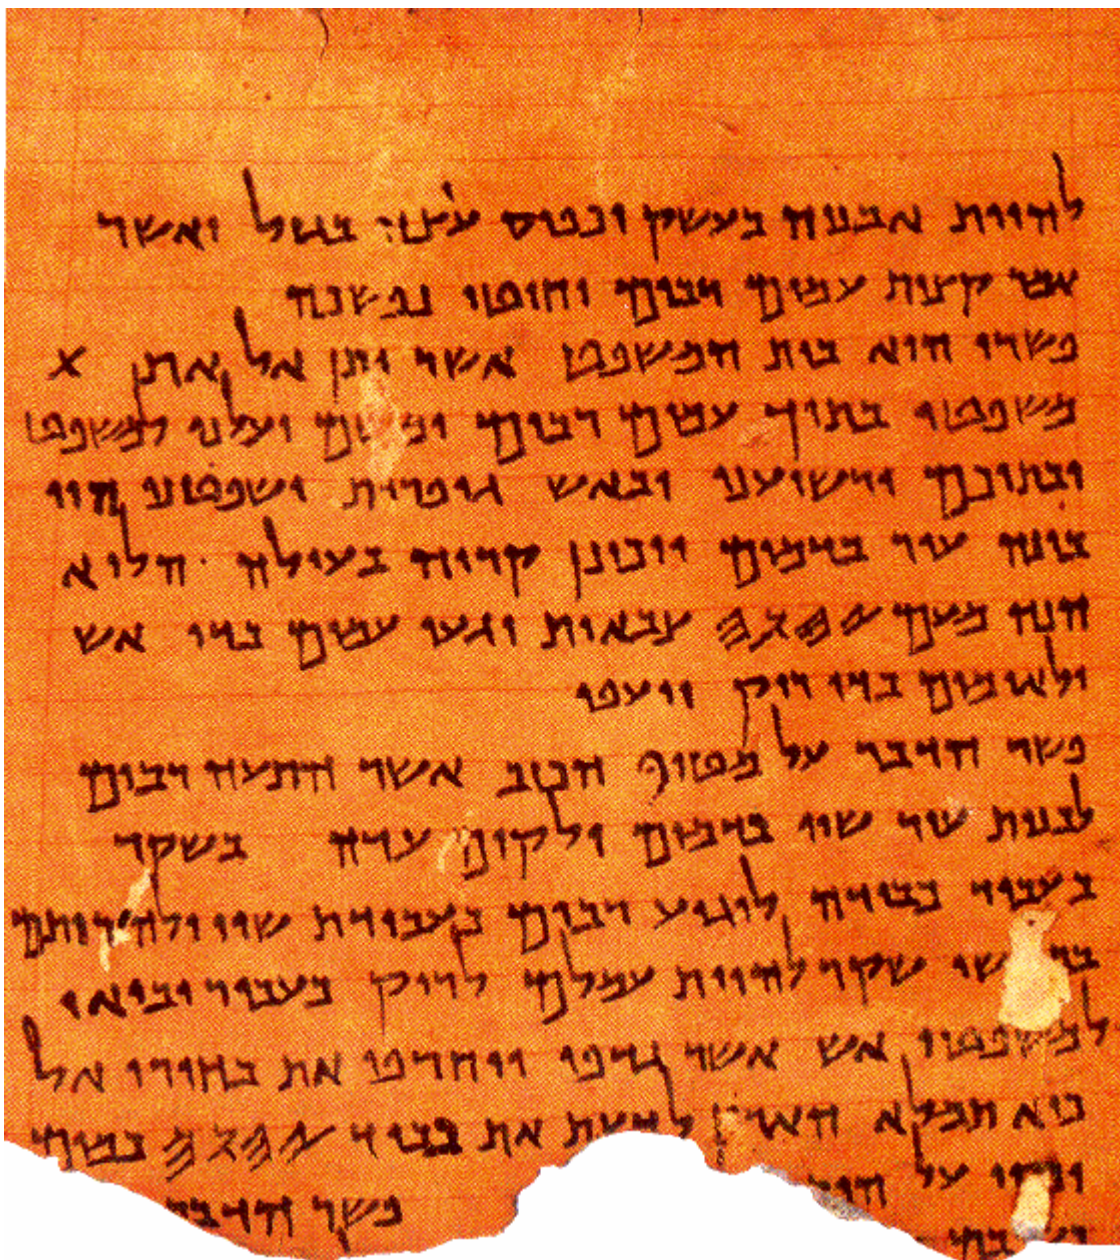 להיות אבניה בעשק וכפיס עיצה בגזל ואשר
אמר קצות עמים רבים וחוטי נפשכה
פשרו הוא בית המשפט אשר יתן אל את X
משפטו בתוך עמים רבים ומשם יעלנו למשפט
ובתוכם ירשיענו ובאש גופרית ישפטנו הוי
בונה עיר בדמים ויכונן קריה בעולה הלוא
הנה מעם 𐤉𐤄𐤅𐤄 צבאות יגעו עמים בדי אש
ולאומים בדי ריק ייעפו
פשר הדבר על מטיף הכזב אשר התעה רבים
לבנות עיר שוו בדמים ולקים עדה בשקר
בעבור כבודה לוגיע רבים בעבודת שוו ולהרותם
שקר להיות עמלם לריק בעבור יבואו
למשפטי אש אשר גדפו ויחרפו את בחירי אל
כיא תמלא הארץ לדעת את כבוד 𐤉𐤄𐤅𐤄 כמים
יכסו על הים פשר הדבר